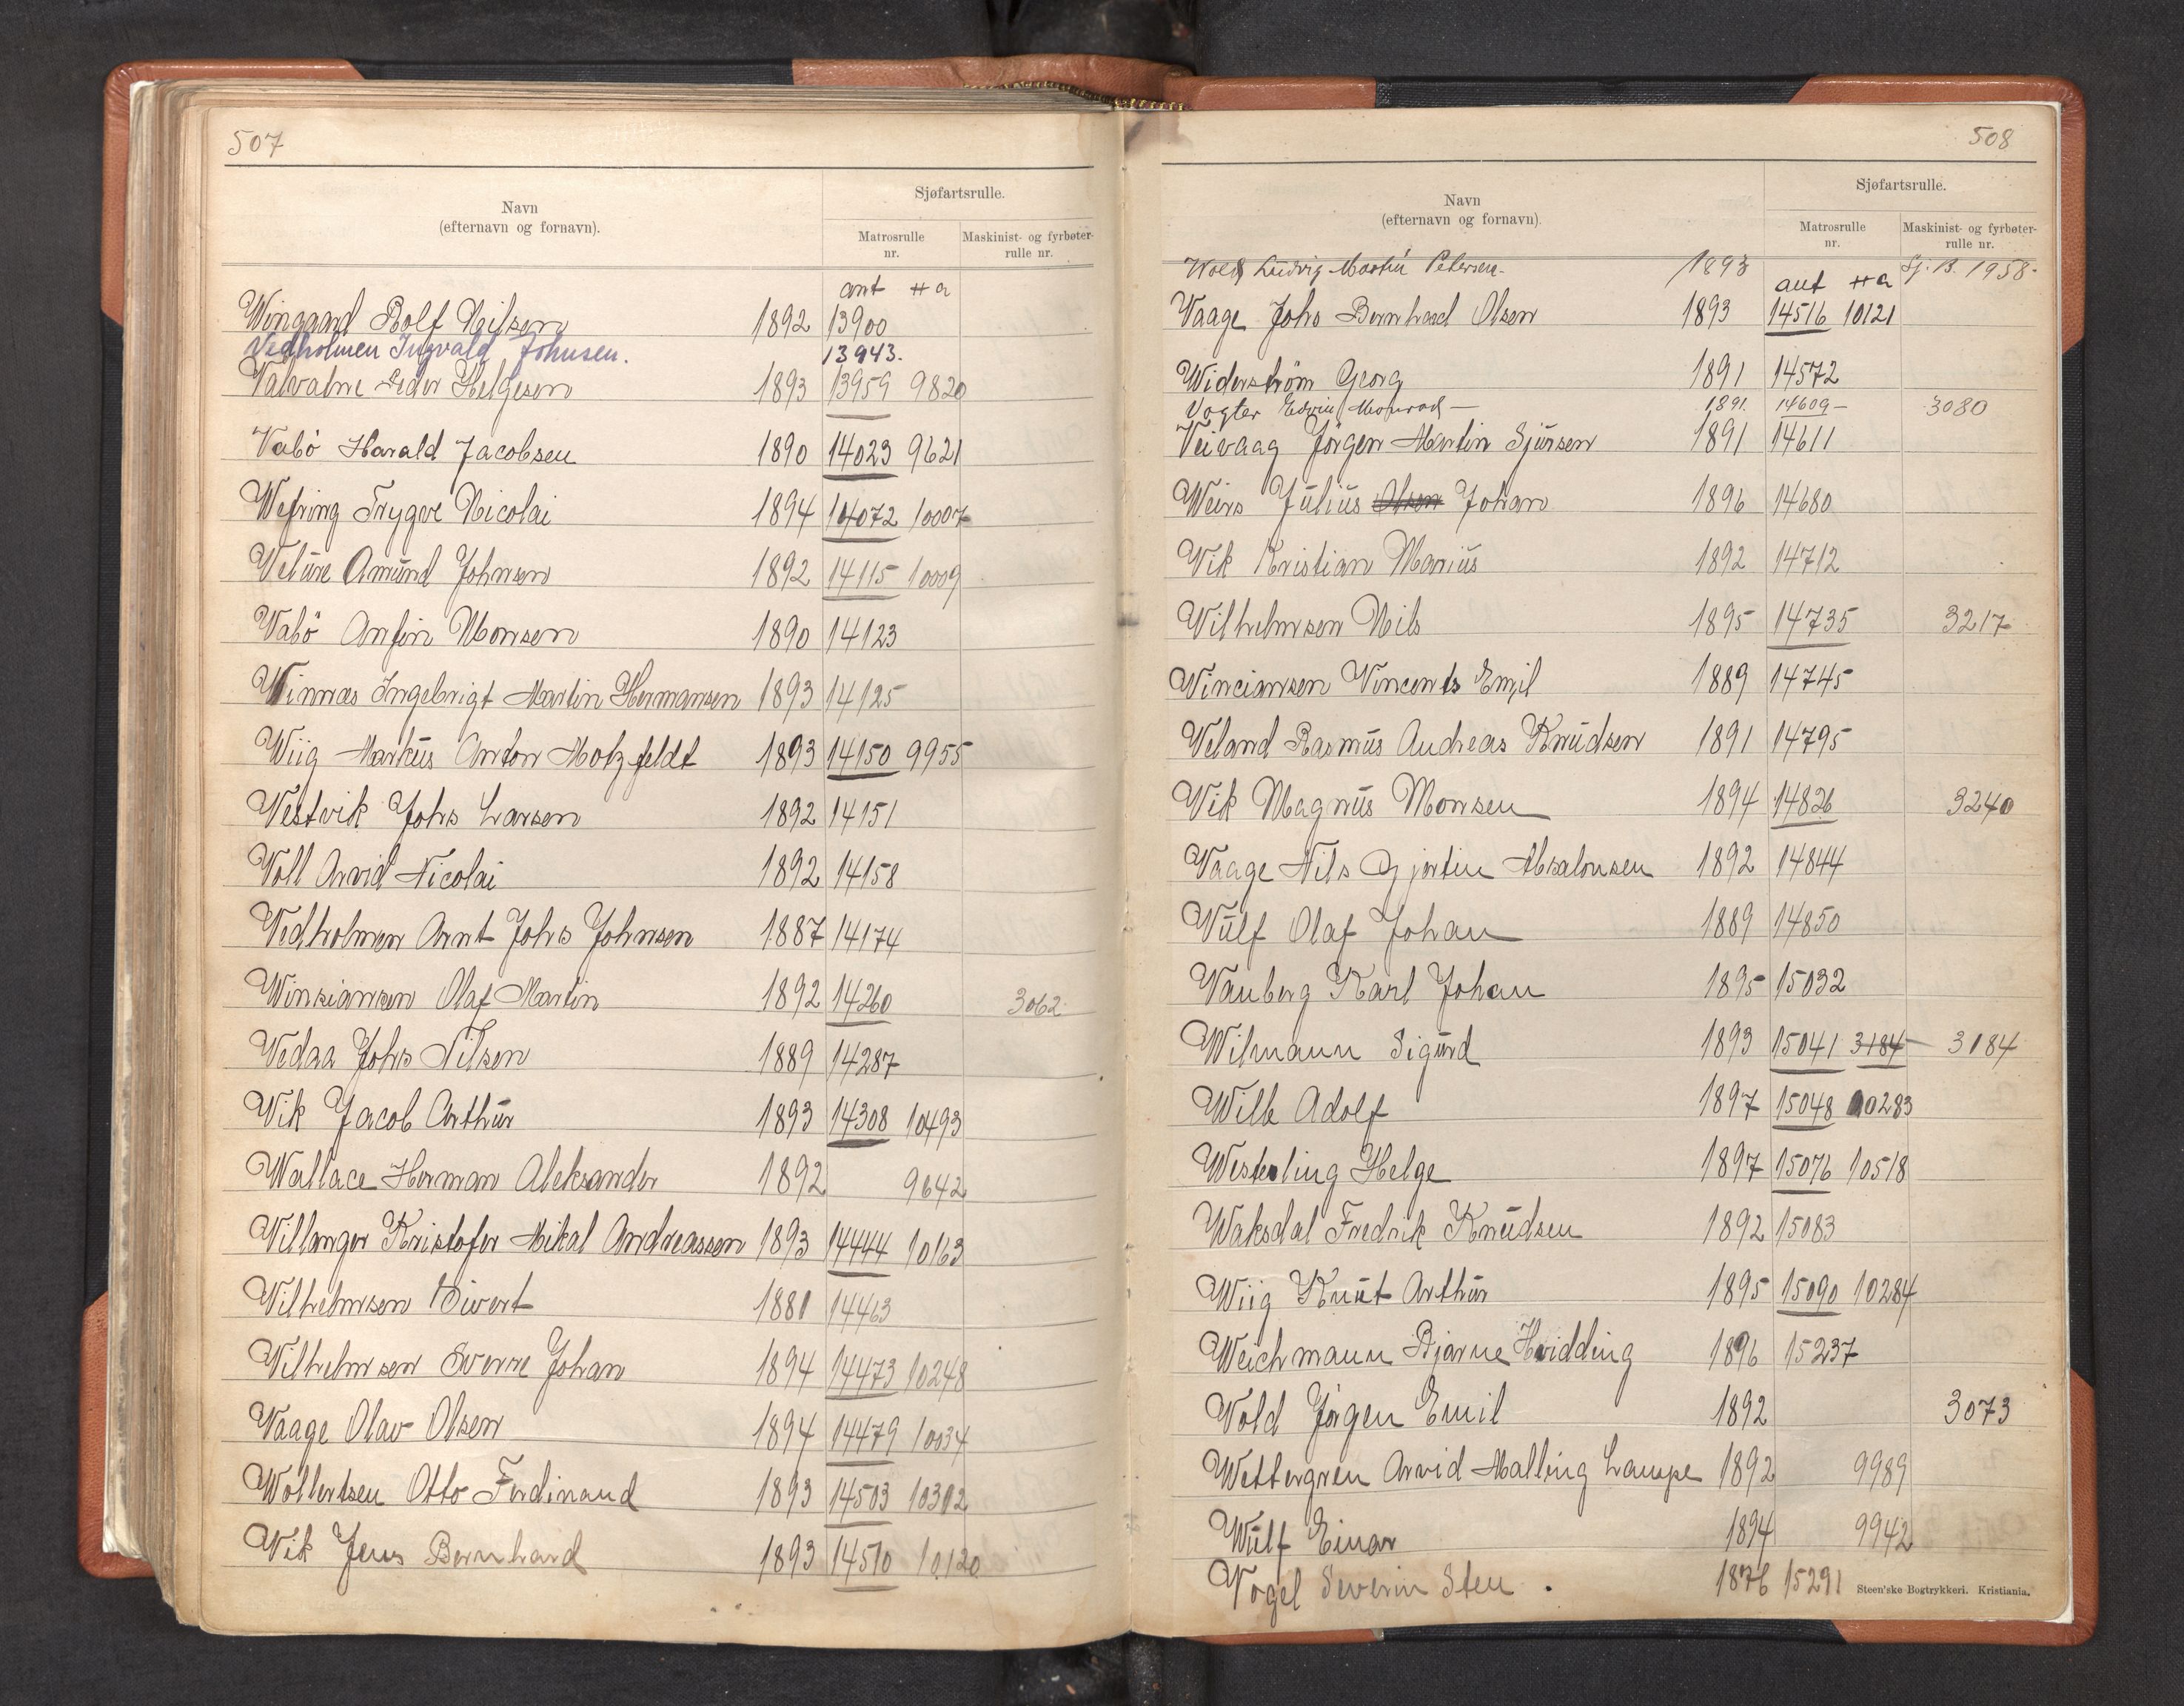 507
Navn
(efternavn og fornavn).
Sjøfartsrulle.
Matrosrulle
nr.
Maskinist- og fyrbøter-
rulle nr.
ant ##a
Wingaard Rolf Nilsen 1892 13900
Vedholmen Ingvald Johnsen. 13943.
Valvatne Peder Helgesen 1893 13959 9820
Vabö Harald Jacobsen 1890 14023 9621
Wefring Trygve Nicolai 1894 14072 10007
Velure Amund Johnsen 1892 14115 10009
Vabö Anfin Monsen 1890 14123
Winnæs Ingebrigt Martin Hermansen 1893 14125
Wiig Markus Anton Motzfeldt 1893 14150 9955
Vestvik Johs Larsen 1892 14151
Voll Arvid Nicolai 1892 14158
Vedholmen Arnt Johs Johnsen 1887 14174
Winsiansen Olaf Martin 1892 14260 3062
Vedaa Johs Nilsen 1889 14287
Vik Jacob Arthur 1893 14308 10493
Wallace Herman Aleksander 1892 9642
Villanger Kristofer Mikal Andreassen 1893 14444 10163
Vilhelmsen Sivert 1881 14463
Vilhelmsen Sverre Johan 1894 14473 10248
Vaage Olav Olsen 1894 14479 10034
Wollertsen Otto Ferdinand 1893 14503 10302
Vik Jens Bernhard 1893 14510 10120
508
Navn
(efternavn og fornavn).
Sjøfartsrulle.
Matrosrulle
nr.
Maskinist- og fyrbøter-
rulle nr.
Ludvig Martin Petersen 1893 Sj. B. 1958
ant ##a
Vaage Johs Bernhard Olsen 1893 14516 10121
Widerström Georg 1891 14572
Vogter Edvin Monrad 1891. 14609 3080
Veivaag Jörgen Martin Sjursen 1891 14611
Weins Julius Olsen Johan 1896 14680
Vik Kristian Marius 1892 14712
Vilhelmsen Nils 1895 14735 3217
Vinciansen Vincents Emil 1889 14745
Veland Rasmus Andreas Knudsen 1891 14795
Vik Magnus Monsen 1894 14826 3240
Vaage Nils Gjertin Absalonsen 1892 14844
Wulf Olaf Johan 1889 14850
Vanberg Karl Johan 1895 15032
Wilmann Sigurd 1893 15041 3184 3184
Wilk Adolf 1897 15048 10283
Westerling Helge 1897 15076 10518
Waksdal Fredrik Knudsen 1892 15083
Wiig Knut Arthur 1895 15090 10284
Weichmann Bjarne Hvidding 1896 15237
Vold Jörgen Emil 1892 3073
Wettergren Arvid Malling Lampe 1892 9989
Wulf Einar 1894 9942
Vogel Severin Sten . 1876 15291
Steen'ske Bogtrykkeri. Kristiania.